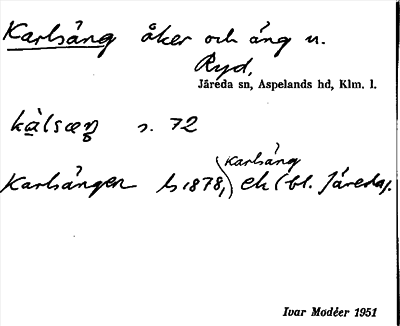 Karlsäng åker och äng u.
Ryd,
Järeda sn, Aspelands hd, Klm. l.
kàlsæŋ s. 72
Karlsäng
Karlsängen ls 1878, ek (bl. Järeda).
Ivar Modéer 1951